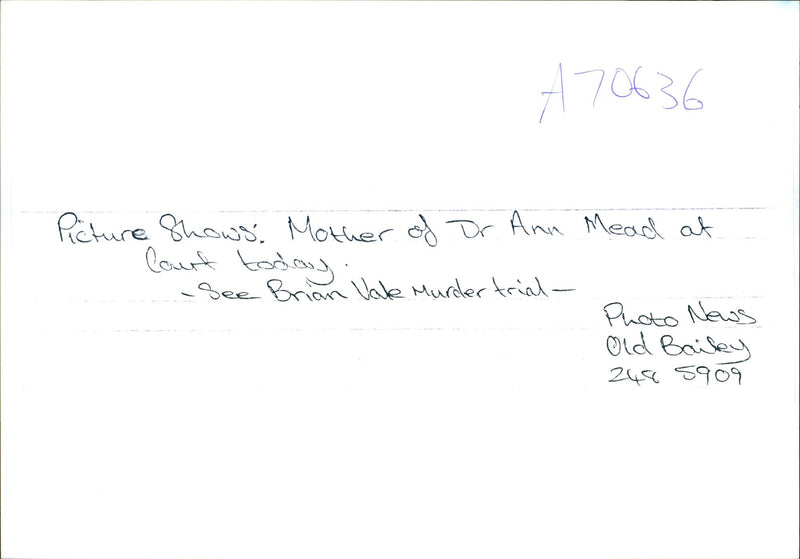 A70636
Picture Shows: Mother of Dr Ann Mead at
Court today.
- See Brian Vale Murder trial -
Photo News
Old Bailey
248 5909